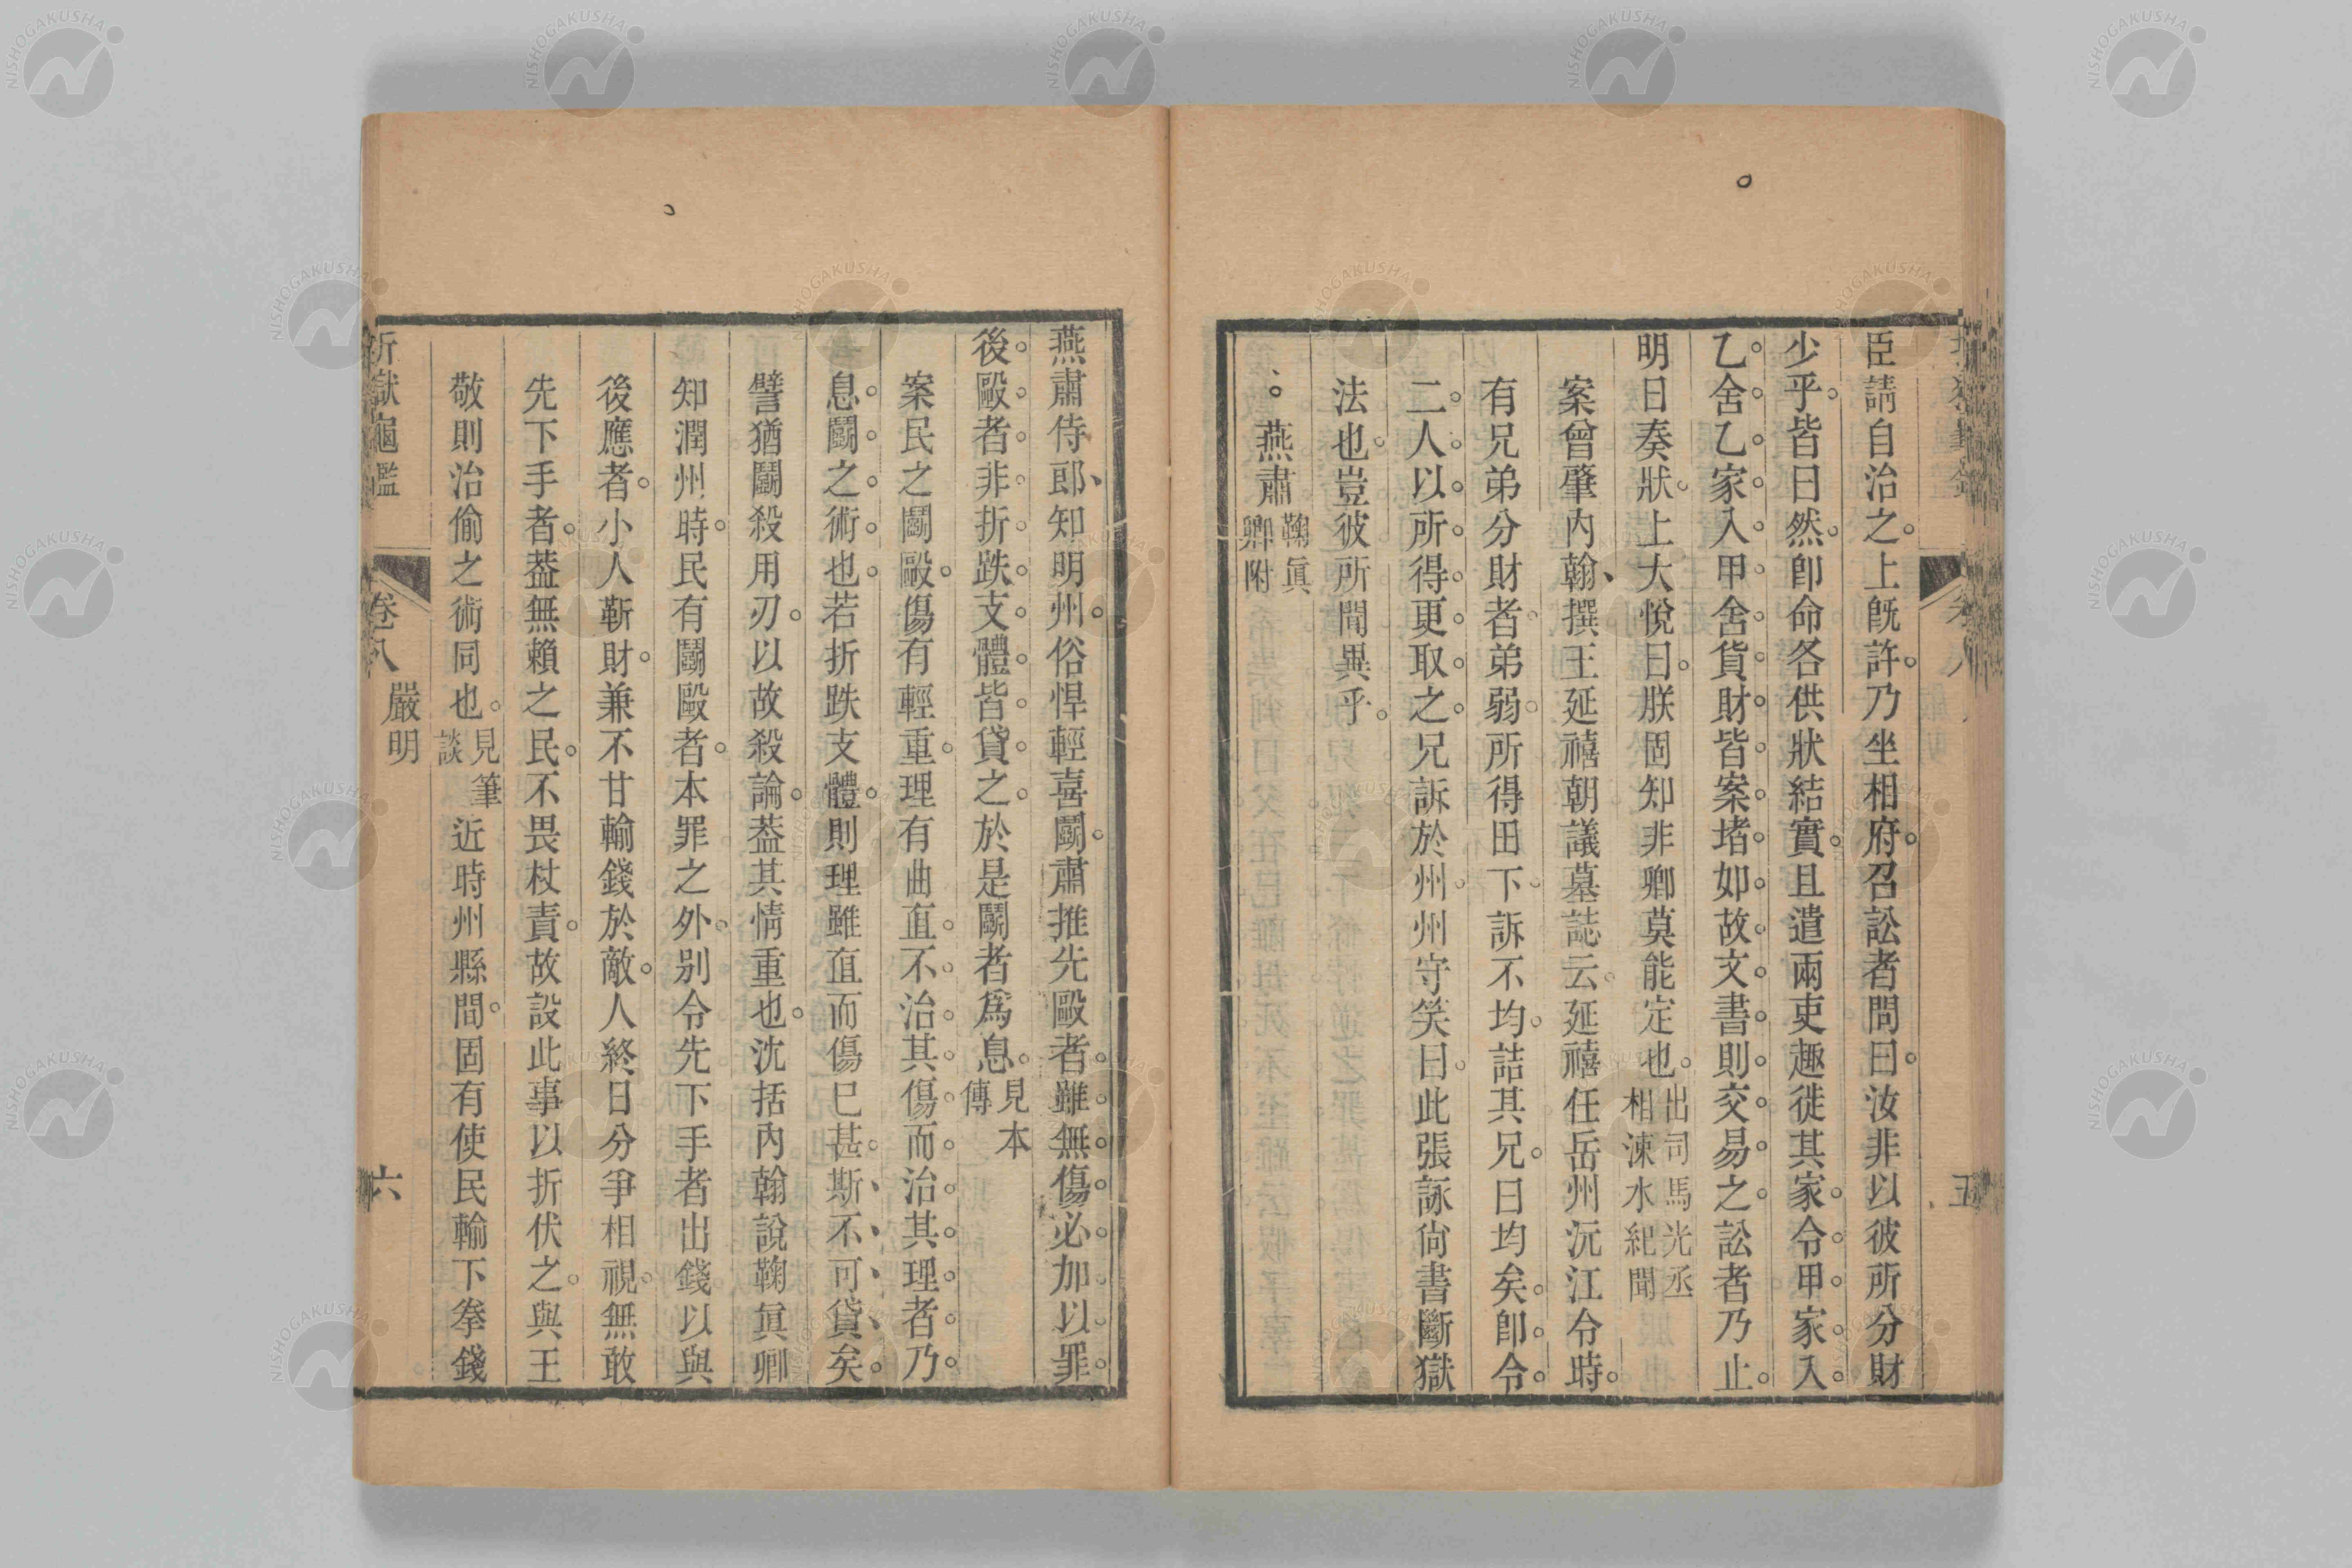 臣請自治之上旣許乃坐相府召訟者問曰汝非以彼所分財
少乎皆曰然卽命各供狀結實且遣兩吏趣徙其家令甲家入
乙舍乙家入甲舍貨財皆案堵如故文書則交易之訟者乃止
明日奏狀上大悅曰朕固知非卿莫能定也出司馬光丞相涑水紀聞
案曾肇內翰撰王延禧朝議墓誌云延禧任岳州沅江令時
有兄弟分財者弟弱所得田下訴不均詰其兄曰均矣卽令
二人以所得更取之兄訴於州州守笑曰此張詠尙書斷獄
法也豈彼所聞異乎
燕肅鞠眞卿附
五
燕肅侍郞知明州俗悍輕喜鬭肅推先毆者雖無傷必加以罪
後毆者非折跌支體皆貸之於是鬭者爲息見本傳
案民之鬭毆傷有輕重理有曲直不治其傷而治其理者乃
息鬭之術也若折跌支體則理雖直而傷已甚斯不可貸矣
譬猶鬭殺用刃以故殺論葢其情重也沈括內翰說鞠眞卿
知潤州時民有鬭毆者本罪之外别令先下手者出錢以與
後應者小人靳財兼不甘輸錢於敵人終日分爭相視無敢
先下手者葢無賴之民不畏杖責故設此事以折伏之與王
敬則治偷之術同也見筆談近時州縣間固有使民輸下拳錢
折獄龜鑑 卷八 嚴明 六
NISHOGAKUSHA